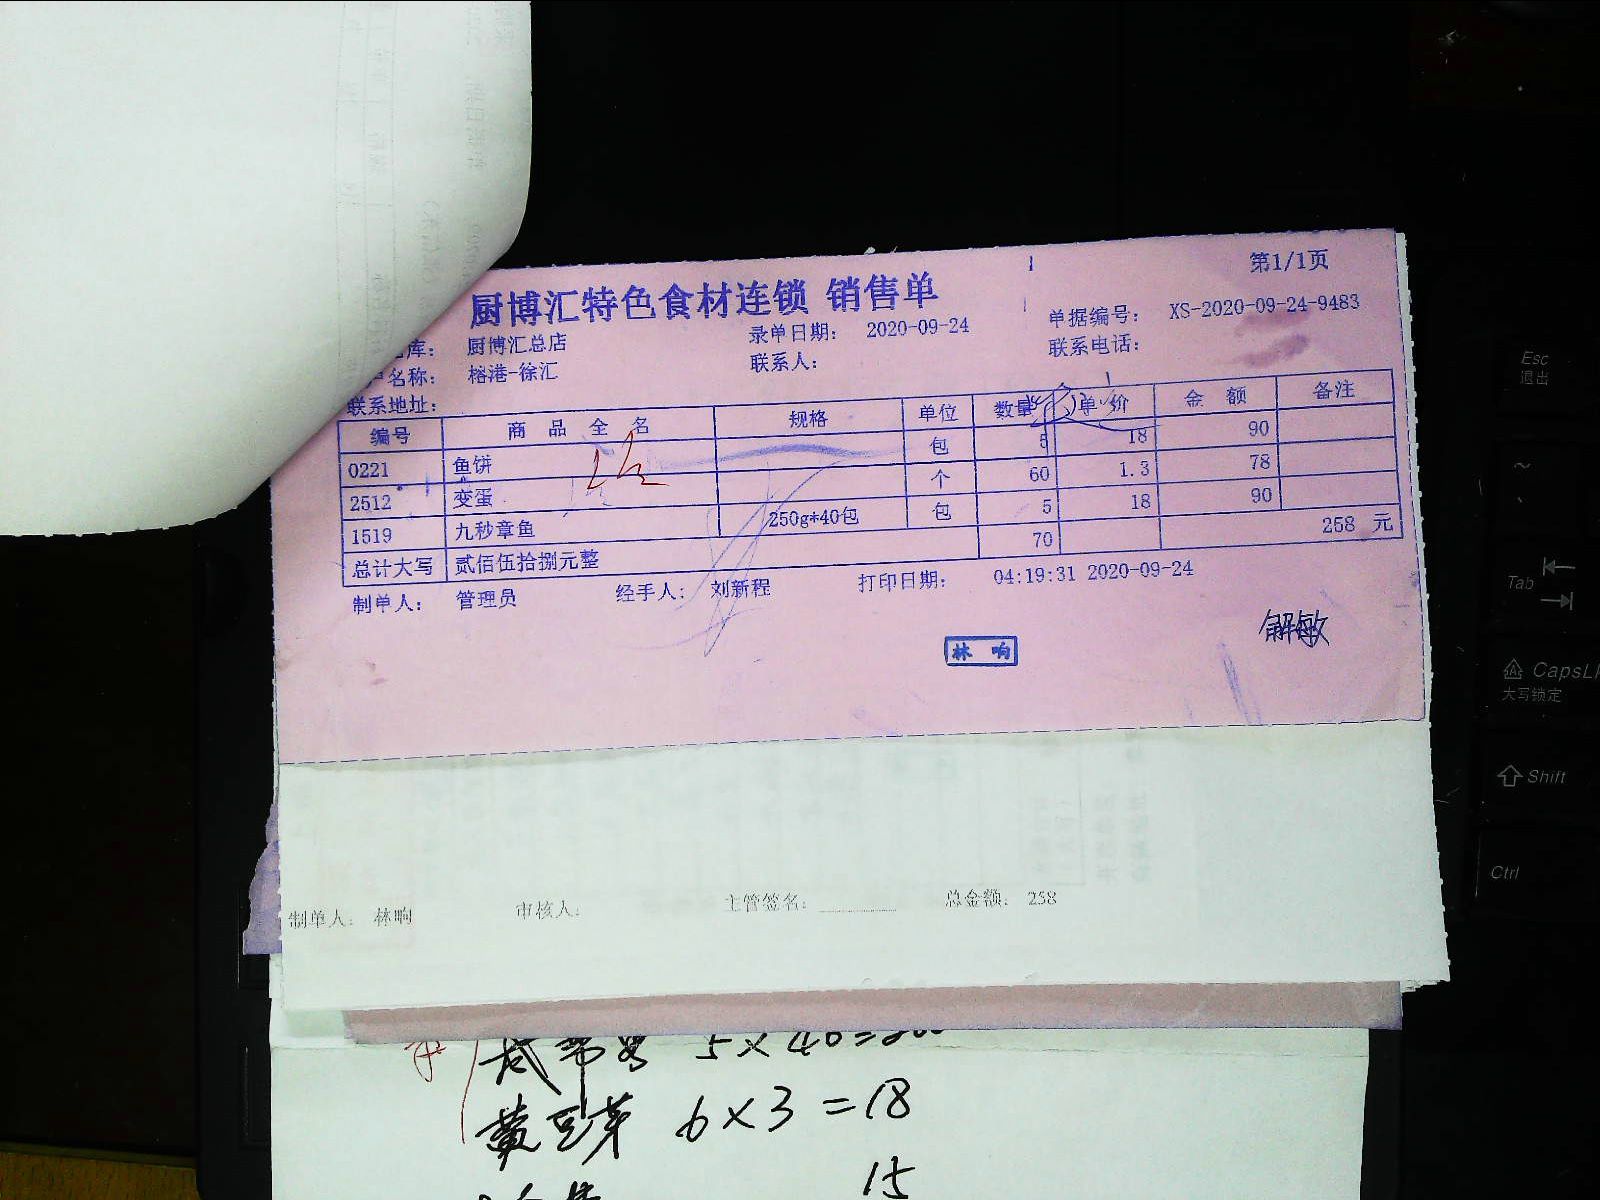 第1/1页
厨博汇特色食材连锁 销售单
库： 厨博汇总店 录单日期： 2020-09-24 单据编号： XS-2020-09-24-9483
户名称： 榕港-徐汇 联系人： 联系电话：
联系地址：
编号 商品全名 规格 单位 数量 单价 金额 备注
0221 鱼饼 包 5 18 90
2512 变蛋 个 60 1.3 78
1519 九秒章鱼 250g*40包 包 5 18 90
总计大写 贰佰伍拾捌元整 70 258 元
制单人： 管理员 经手人： 刘新程 打印日期： 04:19:31 2020-09-24
解敏
林响
制单人： 林响 审核人： 主管签名： 总金额： 258
5×40=
黄豆芽 6×3=18
15
Esc
退出
Tab
CapsL
大写锁定
Shift
Ctrl